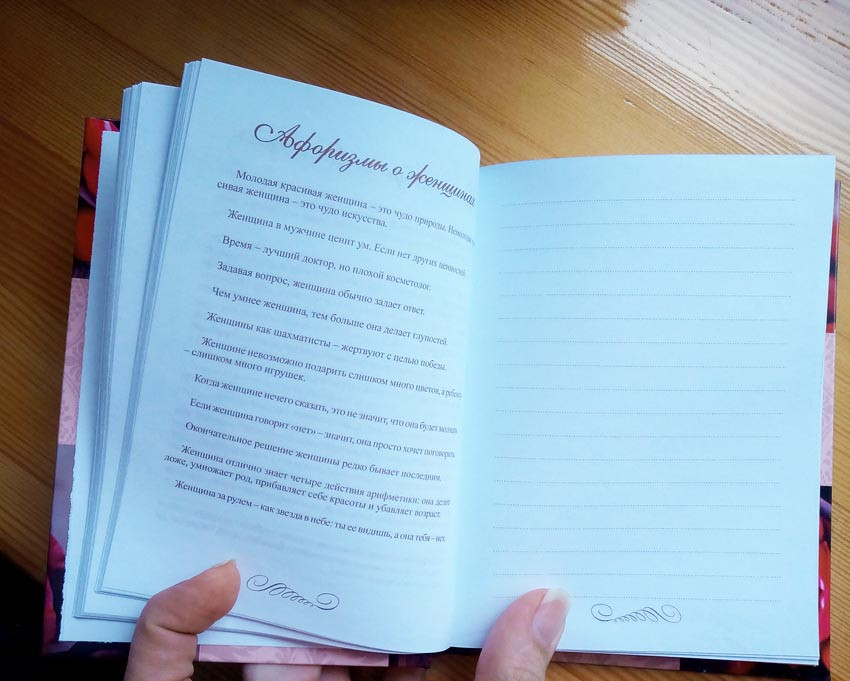 Афоризмы о женщинах
Молодая красивая женщина – это чудо природы. Немолодая
сивая женщина – это чудо искусства.
Женщина в мужчине ценит ум. Если нет других ценностей.
Время – лучший доктор, но плохой косметолог.
Задавая вопрос, женщина обычно задает ответ.
Чем умнее женщина, тем больше она делает глупостей.
Женщины как шахматисты – жертвуют с целью победы.
Женщине невозможно подарить слишком много цветов, а ребенку
– слишком много игрушек.
Когда женщине нечего сказать, это не значит, что она будет молчать.
Если женщина говорит «нет» – значит, она просто хочет поговорить.
Окончательное решение женщины редко бывает последним.
Женщина отлично знает четыре действия арифметики: она делит
ложе, умножает род, прибавляет себе красоты и убавляет возраст.
Женщина за рулем – как звезда в небе: ты ее видишь, а она тебя – нет.